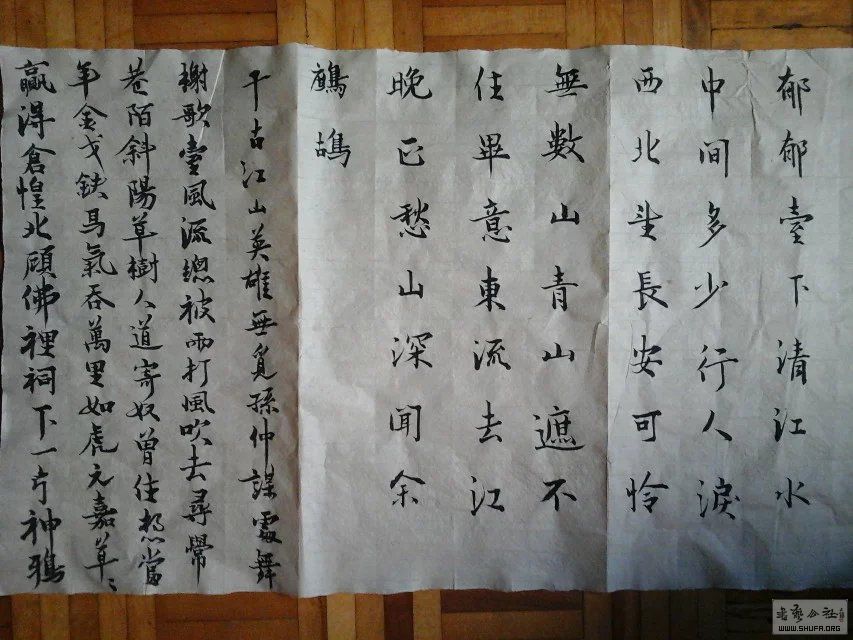 郁郁臺下清江水
中间多少行人淚
西北望長安可怜
無數山青山遮不
住畢意東流去江
晚正愁山深聞余
鷓鴣
千古江山英雄無覓孫仲謀處舞
榭歌臺風流總被雨打風吹去尋常
巷陌斜陽草樹人道寄奴曾住想當
年金戈鉄馬氣吞萬里如虎元嘉草〻
贏得倉惶北顧佛裡祠下一片神鴉
WWW.SHUFA.ORG